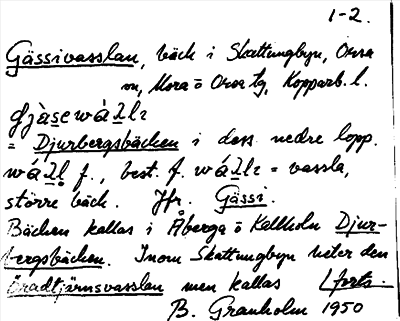 1-2.
Gässivasslan, bäck i Skattungbyn, Orsa
sn, Mora o Orsa tg, Kopparb. l.
= Djurbergsbäcken i dess nedre lopp.
f., best. f. = vassla,
större bäck. Jfr. Gässi.
Bäcken kallas i Åberga o Kallholn Djur-
bergsbäcken. Inom Skattungbyn heter den
Öradtjärnsvasslan men kallas forts.
B. Granholm 1950